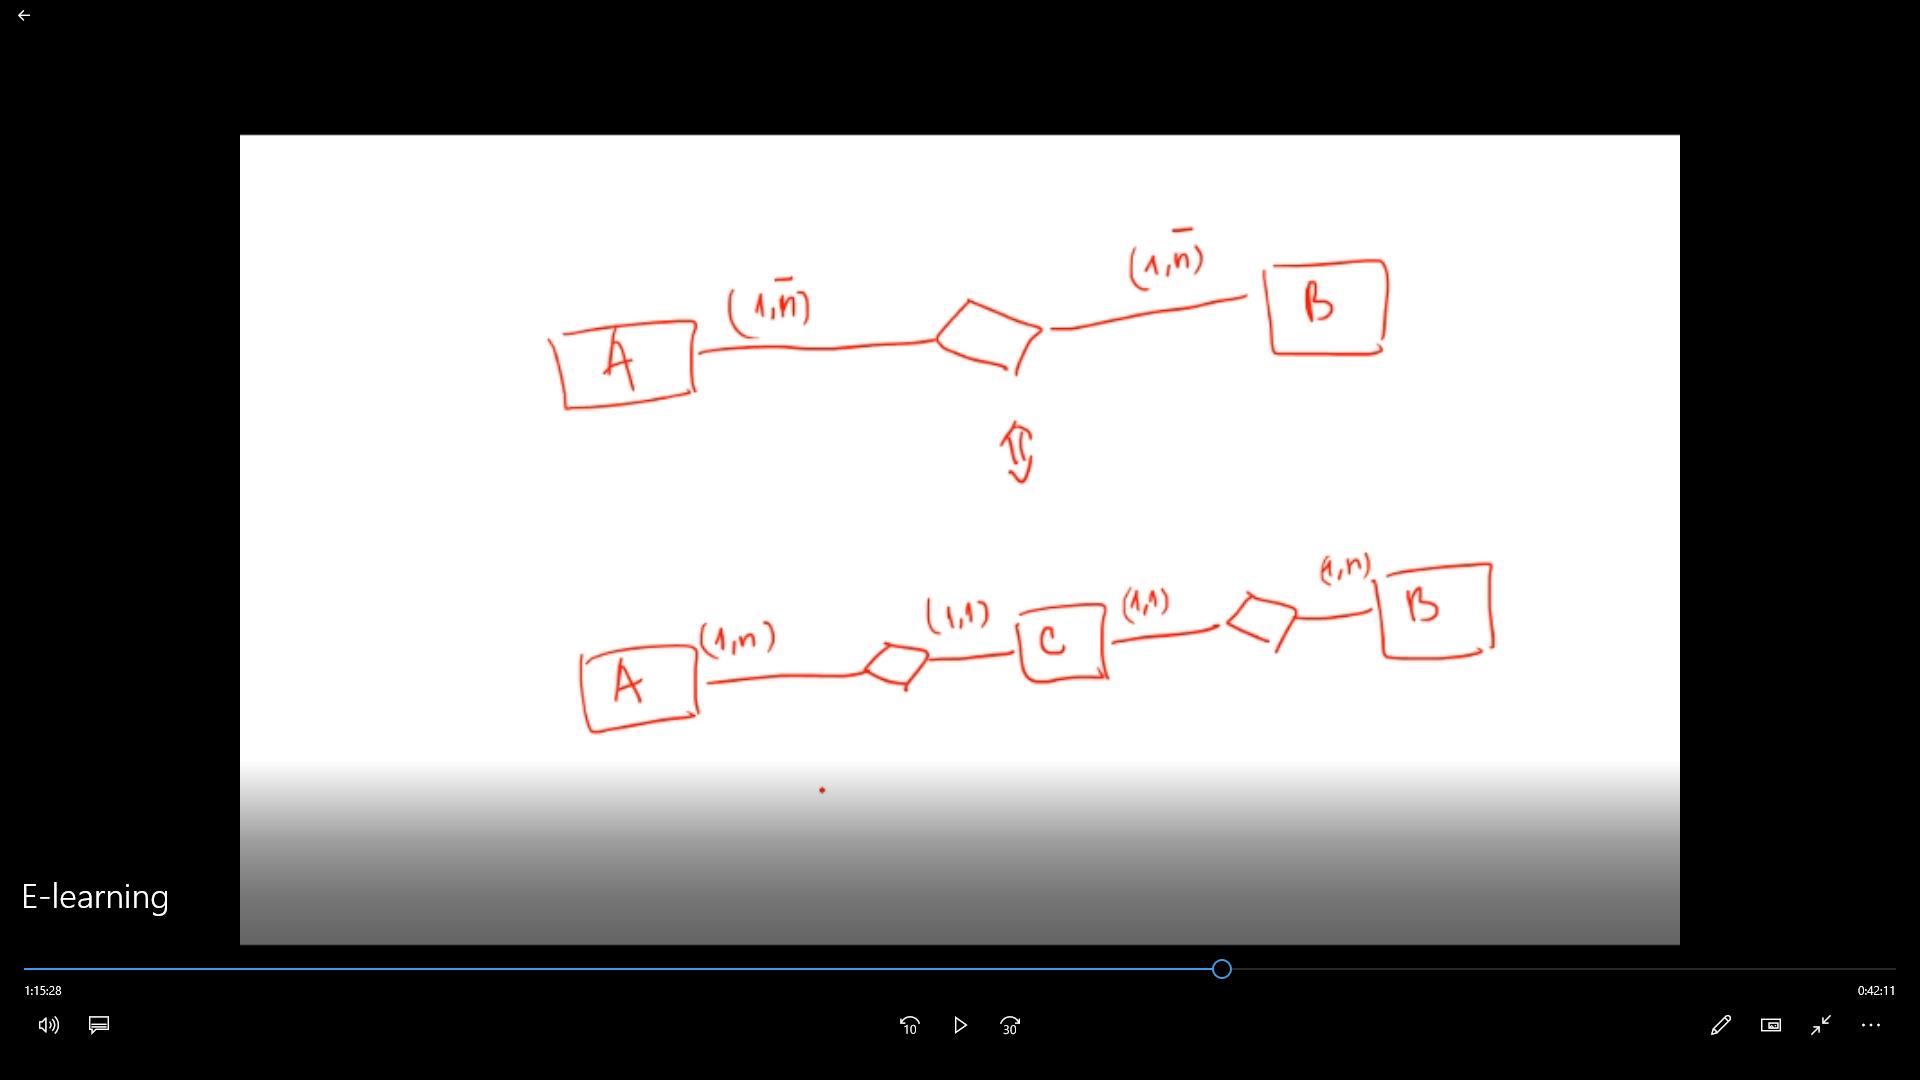 (1,n̄)
(1,n̄)
A
B
(1,n)
(1,1)
(1,1)
(1,n)
A
C
B
E-learning
1:15:28
0:42:11
10
30